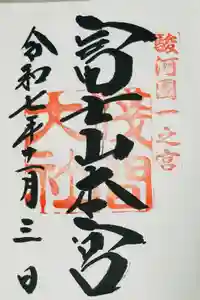 駿河國一之宮
富士山本宮
浅間大社
令和七年十一月三日